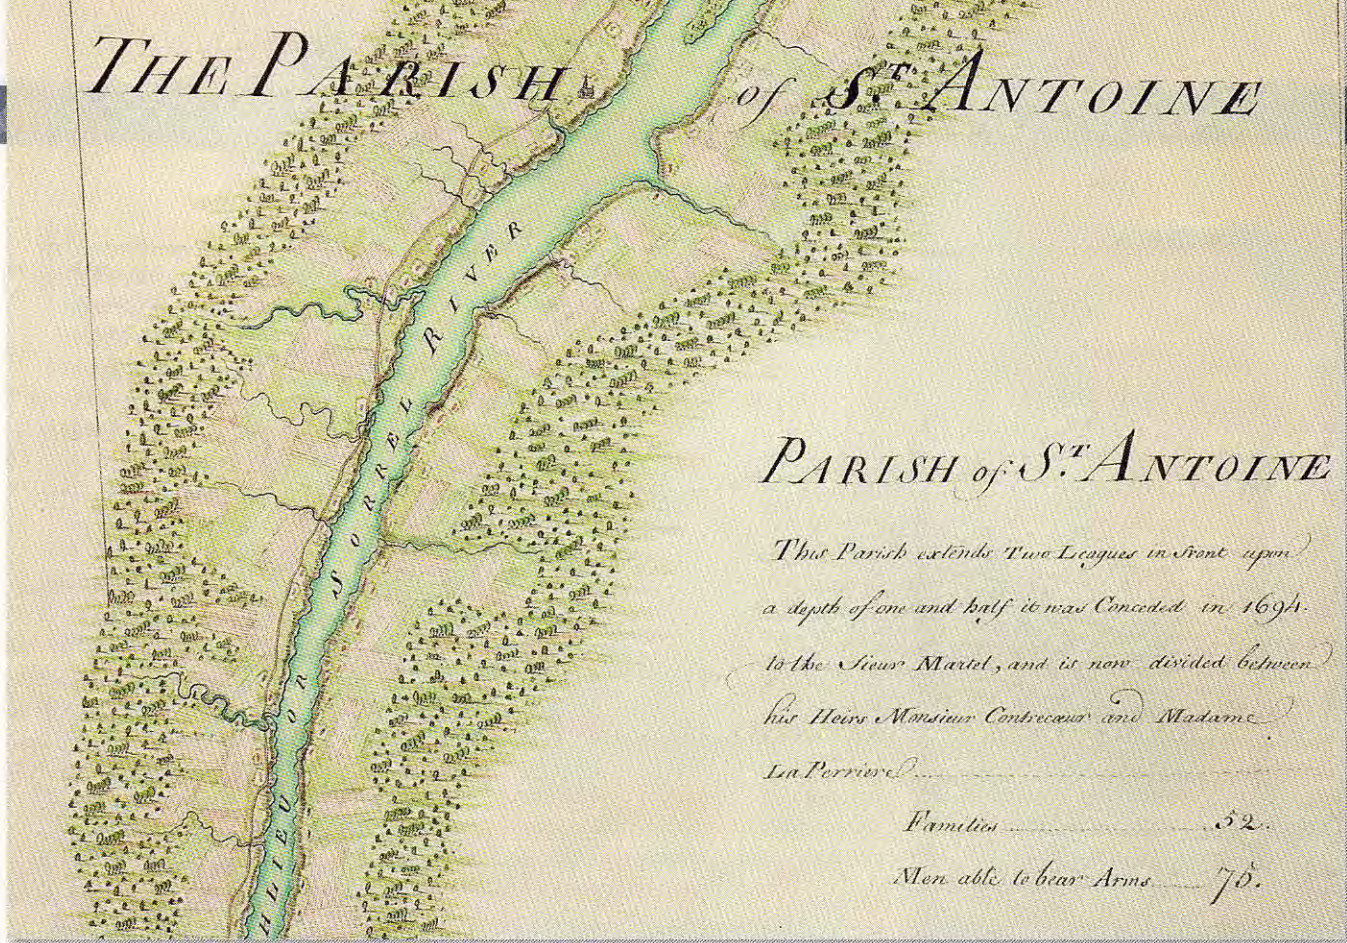 THE PARISH of S.T ANTOINE
HLIEU OR SORREL RIVER
PARISH of S.T ANTOINE
This Parish extends Two Leagues in front upon
a depth of one and half it was Conceded in 1694.
to the Sieur Martel, and is now divided between
his Heirs Monsieur Contrecœur and Madame
La Perriere
Families 52.
Men able to bear Arms 75.